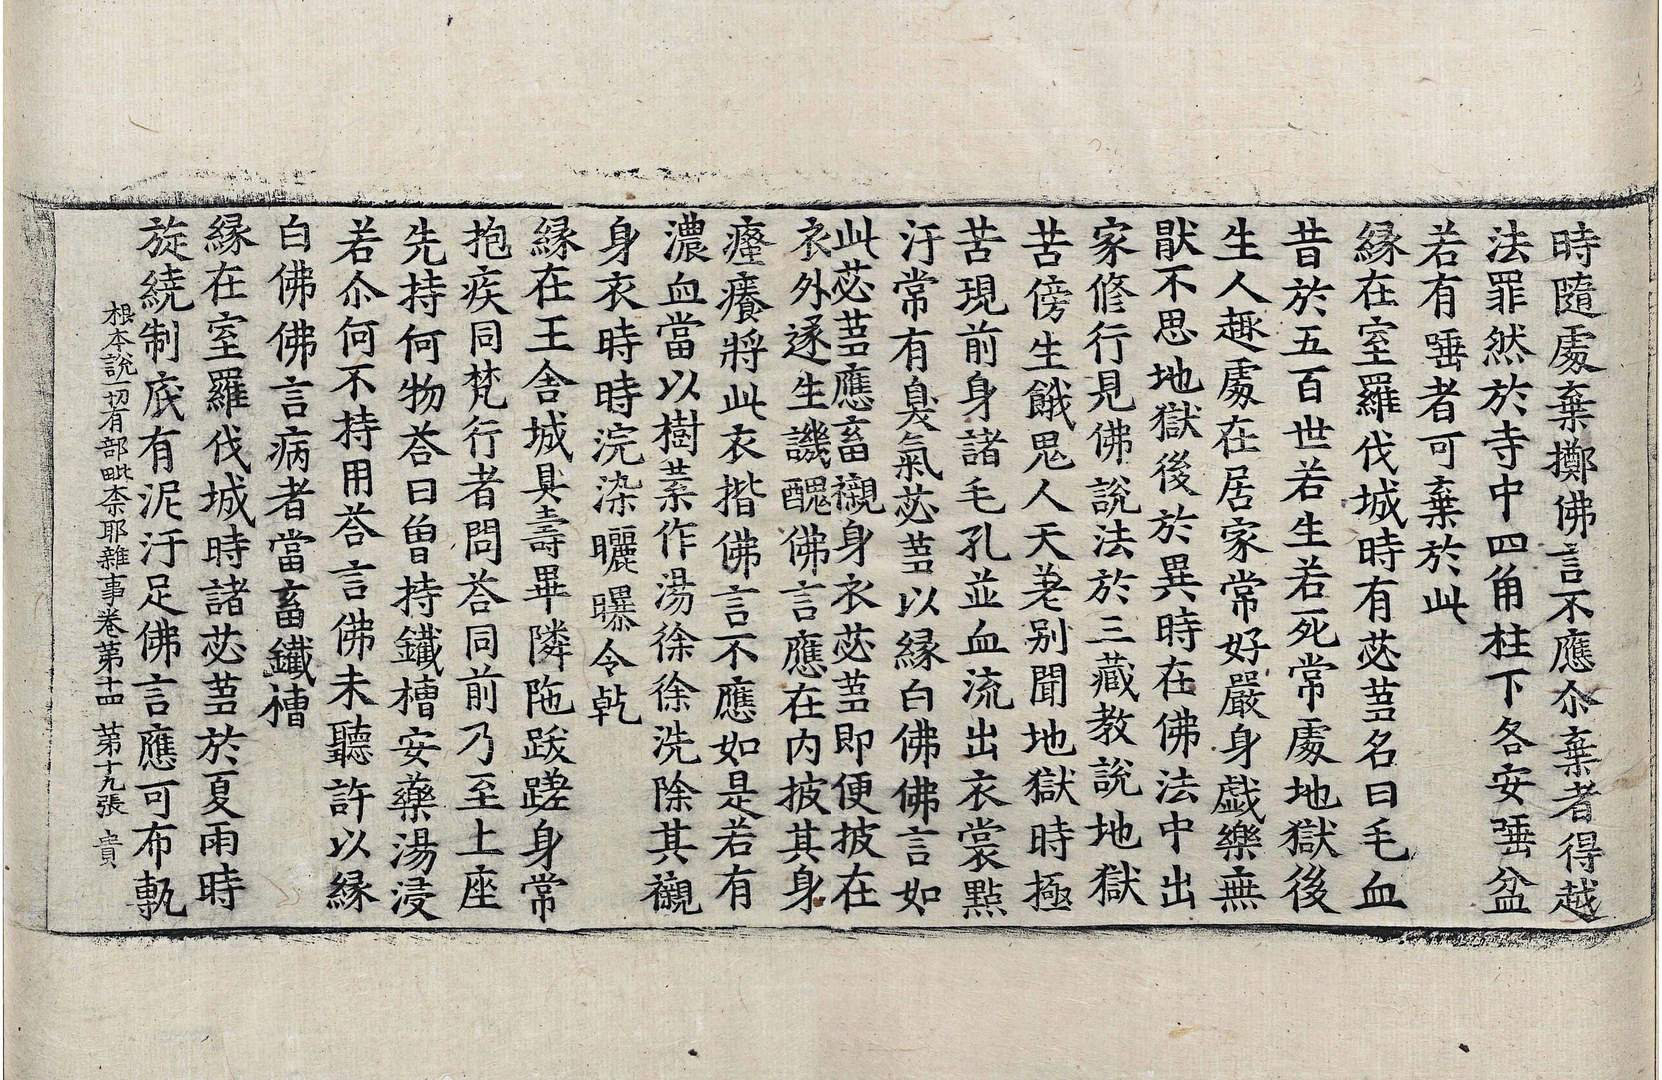 時隨處棄擲佛言不應尒棄者得越
法罪然於寺中四角柱下各安唾盆
若有唾者可棄於此
緣在室羅伐城時有苾芻名曰毛血
昔於五百世若生若死常處地獄後
生人趣處在居家常好嚴身戲樂無
猒不思地獄後於異時在佛法中出
家修行見佛說法於三藏教說地獄
苦傍生餓鬼人天差別聞地獄時極
苦現前身諸毛孔並血流出衣裳點
汙常有臭氣苾芻以緣白佛佛言如
此苾芻應畜襯身衣苾芻即便披在
衣外遂生譏醜佛言應在內披其身
瘞癢將此衣揩佛言不應如是若有
濃血當以樹葉作湯徐徐洗除其襯
身衣時時浣染曬曝令乾
緣在王舍城具壽畢隣陁跋蹉身常
抱疾同梵行者問荅同前乃至上座
先持何物荅曰曾持鐵槽安藥湯浸
若尒何不持用荅言佛未聽許以緣
白佛佛言病者當畜鐵槽
緣在室羅伐城時諸苾芻於夏雨時
旋繞制底有泥汙足佛言應可布甎
根本說一切有部毗柰耶雜事卷第十四 第十九張 貴